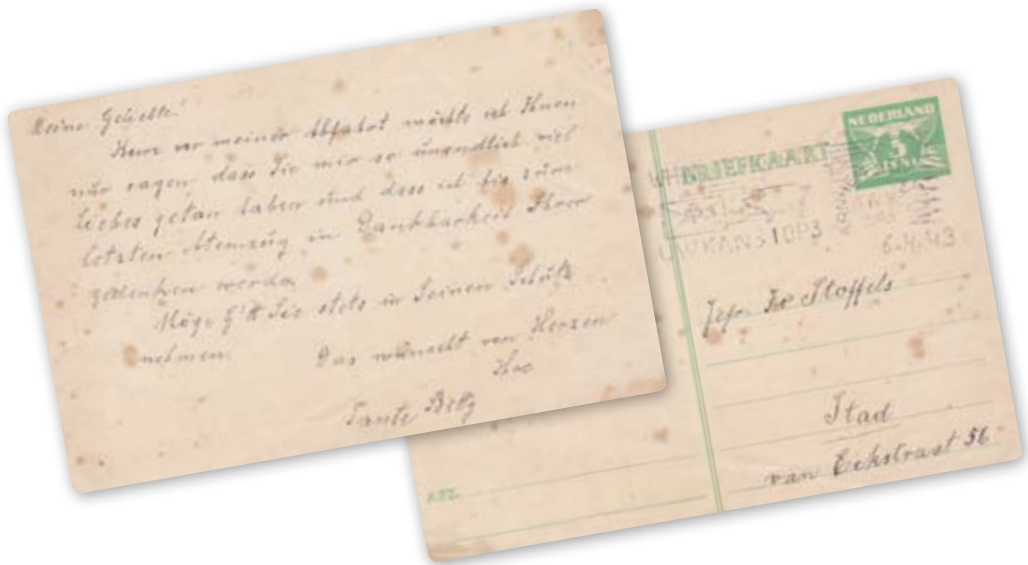 Meine Geliebte!
Kurz vor meiner Abfahrt möchte ich Ihnen
nur sagen, dass Sie mir so unendlich viel
liebes getan haben und dass ich bis zum
letzten Atemzug in Dankbarkeit Ihrer
gedenken werde.
Möge G'tt Sie stets in Seinen Schutz
nehmen. Das wünscht von Herzen
Ihre
Tante Betz
NEDERLAND
5
CENT
BRIEFKAART
6.4.43
Jefr. Stoffels
Stad
van Eckstraat 56
AFZ.